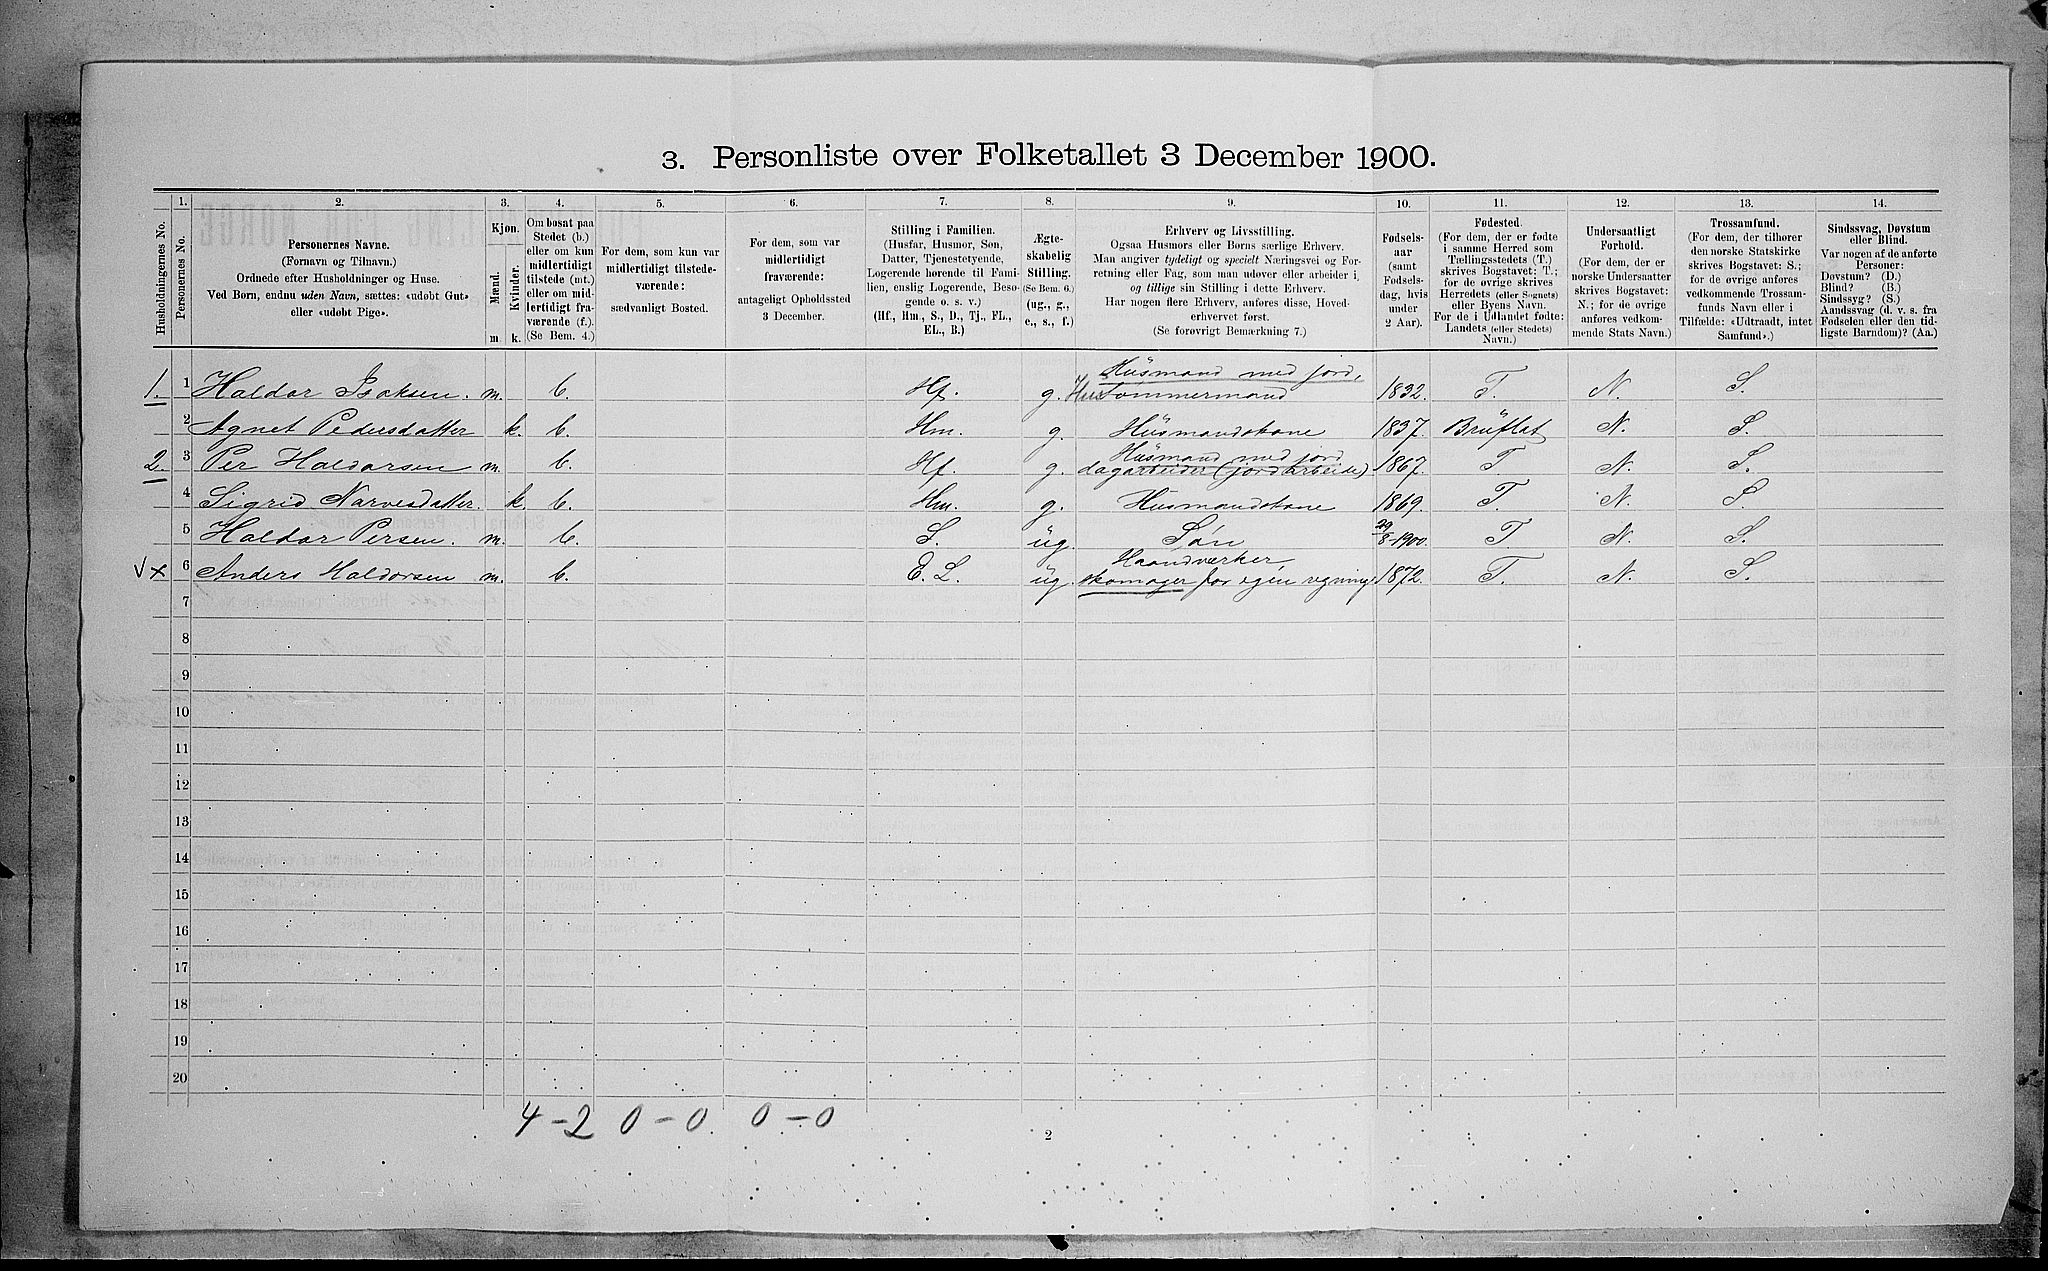 3. Personliste over Folketallet 3 December 1900.
Husholdningernes No.
1.
Personernes No.
2.
Personernes Navne.
(Fornavn og Tilnavn.)
Ordnede efter Husholdninger og Huse.
Ved Børn, endnu uden Navn, sættes: «udøbt Gut»
eller «udøbt Pige».
3.
Kjøn.
Mænd.
Kvinder.
m. k.
4.
Om bosat paa
Stedet (b.)
eller om kun
midlertidigt
tilstede (mt.)
eller om mid-
lertidigt fra-
værende (f.).
(Se Bem. 4.)
5.
For dem, som kun var
midlertidigt tilstede-
værende:
sædvanligt Bosted.
6.
For dem, som var
midlertidigt
fraværende:
antageligt Opholdssted
3 December.
7.
Stilling i Familien.
(Husfar, Husmor, Søn,
Datter, Tjenestetyende,
Logerende hørende til Fami-
lien, enslig Logerende, Besø-
gende o. s. v.)
(Hf., Hm., S., D., Tj., FL.,
EL., B.)
8.
Ægte-
skabelig
Stilling.
(Se Bem. 6.)
(ug., g.,
e., s., f.)
9.
Erhverv og Livsstilling.
Ogsaa Husmors eller Børns særlige Erhverv.
Man angiver tydeligt og specielt Næringsvei og For-
retning eller Fag, som man udøver eller arbeider i,
og tillige sin Stilling i dette Erhverv.
Har nogen flere Erhverv, anføres disse, Hoved-
erhvervet først.
(Se forøvrigt Bemærkning 7.)
10.
Fødsels-
aar
(samt
Fødsels-
dag, hvis
under
2 Aar).
11.
Fødested.
(For dem, der er fødte
i samme Herred som
Tællingsstedets (T.)
skrives Bogstavet: T.;
for de øvrige skrives
Herredets (eller Sognets)
eller Byens Navn.
For de i Udlandet fødte:
Landets (eller Stedets)
Navn.)
12.
Undersaatligt
Forhold.
(For dem, der er
norske Undersaatter
skrives Bogstavet:
N.; for de øvrige
anføres vedkom-
mende Stats Navn.)
13.
Trossamfund.
(For dem, der tilhører
den norske Statskirke
skrives Bogstavet: S.;
for de øvrige anføres
vedkommende Trossam-
funds Navn eller i
Tilfælde: «Udtraadt, intet
Samfund».)
14.
Sindssvag, Døvstum
eller Blind.
Var nogen af de anførte
Personer:
Døvstum? (D.)
Blind? (B.)
Sindssyg? (S.)
Aandssvag (d. v. s. fra
Fødselen eller den tid-
ligste Barndom)? (Aa.)
1. 1 Haldor Isaksen. m. b. Hf. g. Husmand med jord, Tømmermand 1832. T. N. S.
2 Agnet Pedersdatter k. b. Hm. g. Husmandskone 1837. Bruflat N. S.
2. 3 Per Haldorsen m. b. Hf. g. Husmand med jord dagarbeider (jordarbeide) 1867. T N. S.
4 Sigrid Narvesdatter. k. b. Hm. g. Husmandskone 1869. T. N. S.
5 Haldor Persen. m. b. S. ug. Søn 29/8-1900. T N. S.
√x 6 Anders Haldorsen m. b. E. L. ug. Haandværker, skomager for egen regning 1872. T. N. S.
7
8
9
10
11
12
13
14
15
16
17
18
19
20
4-2 0-0. 0-0
2